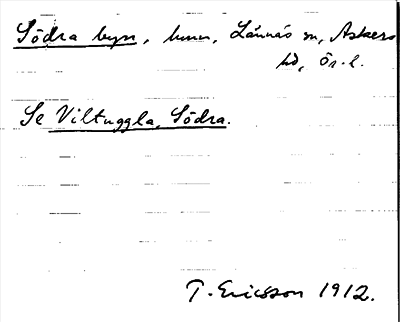 Södra byn, hmn, Lännäs sn, Askers
hd, Ör. l.
Se Viltuggla, Södra.
T. Ericsson 1912.